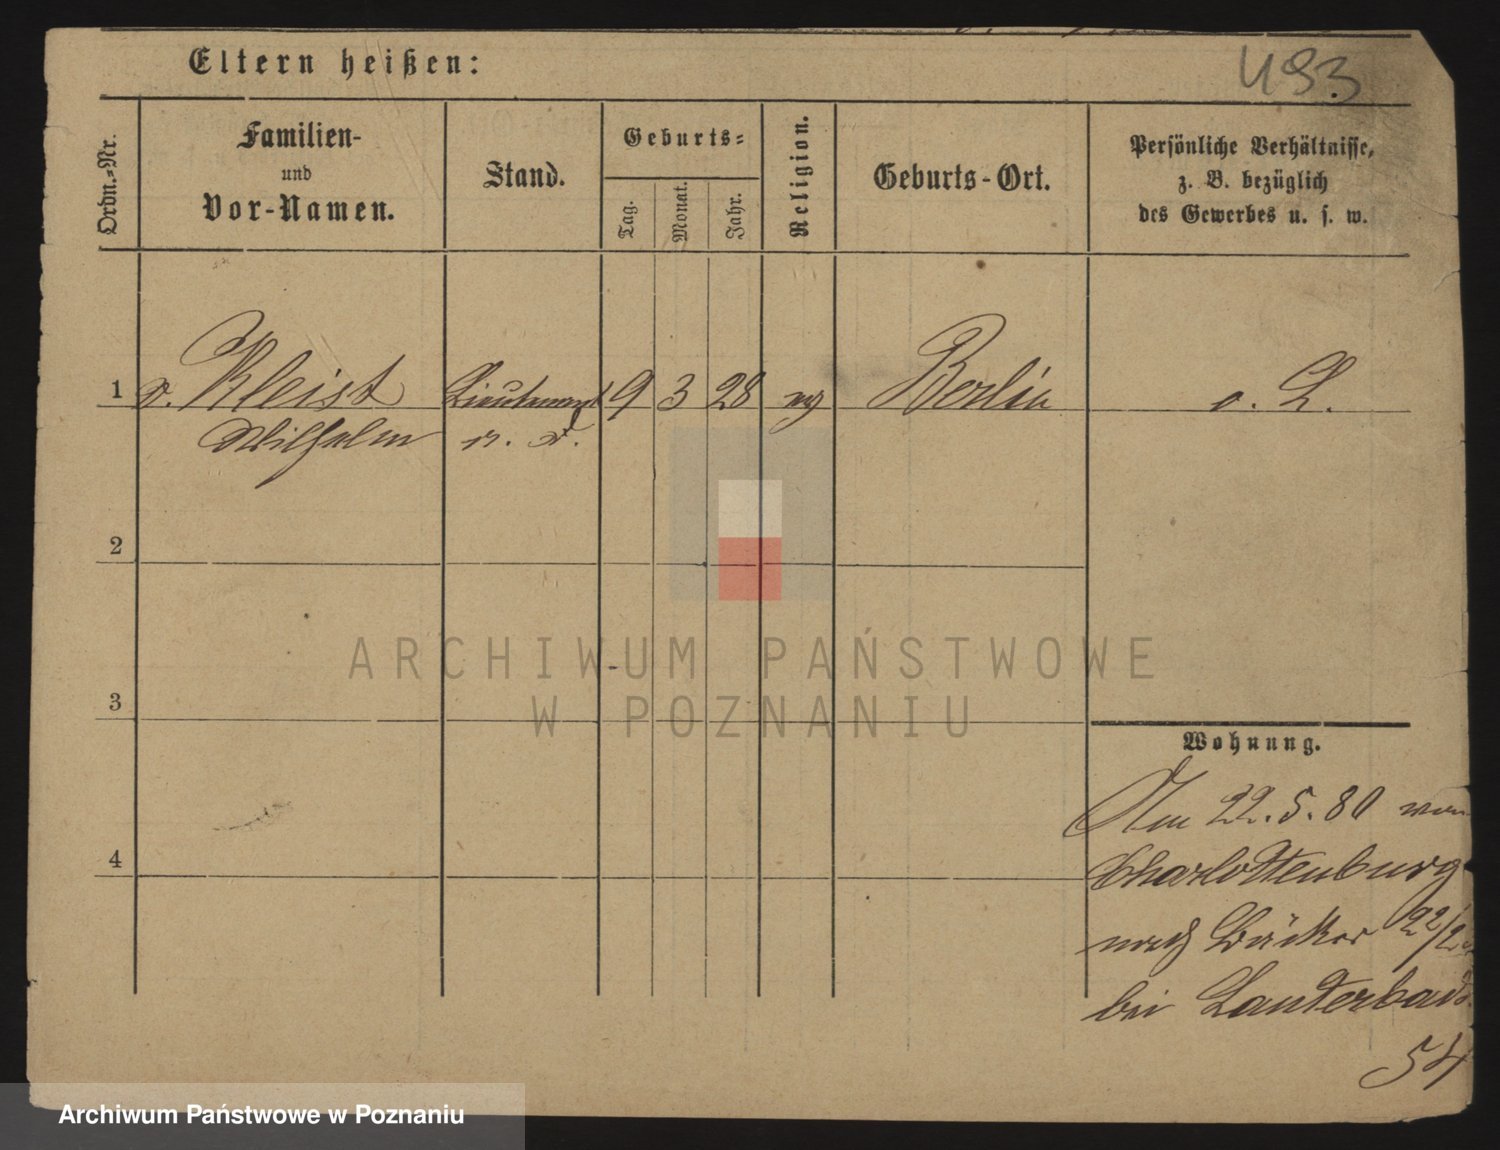 Eltern heißen:
493
Ordn.-Nr.
Familien-
und
Vor-Namen.
Stand.
Geburts-
Tag.
Monat.
Jahr.
Religion.
Geburts-Ort.
Persönliche Verhältnisse,
z. B. bezüglich
des Gewerbes u. s. w.
1 v. Kleist Lieutenant 9 3 28 ev Berlin o. L.
Wilhelm a. D.
2
3
4
ARCHIWUM PAŃSTWOWE
W POZNANIU
Wohnung.
Am 22.5.80 von
Charlottenburg
nach Bäcker 22/23
bei Lauterbach
54
Archiwum Państwowe w Poznaniu